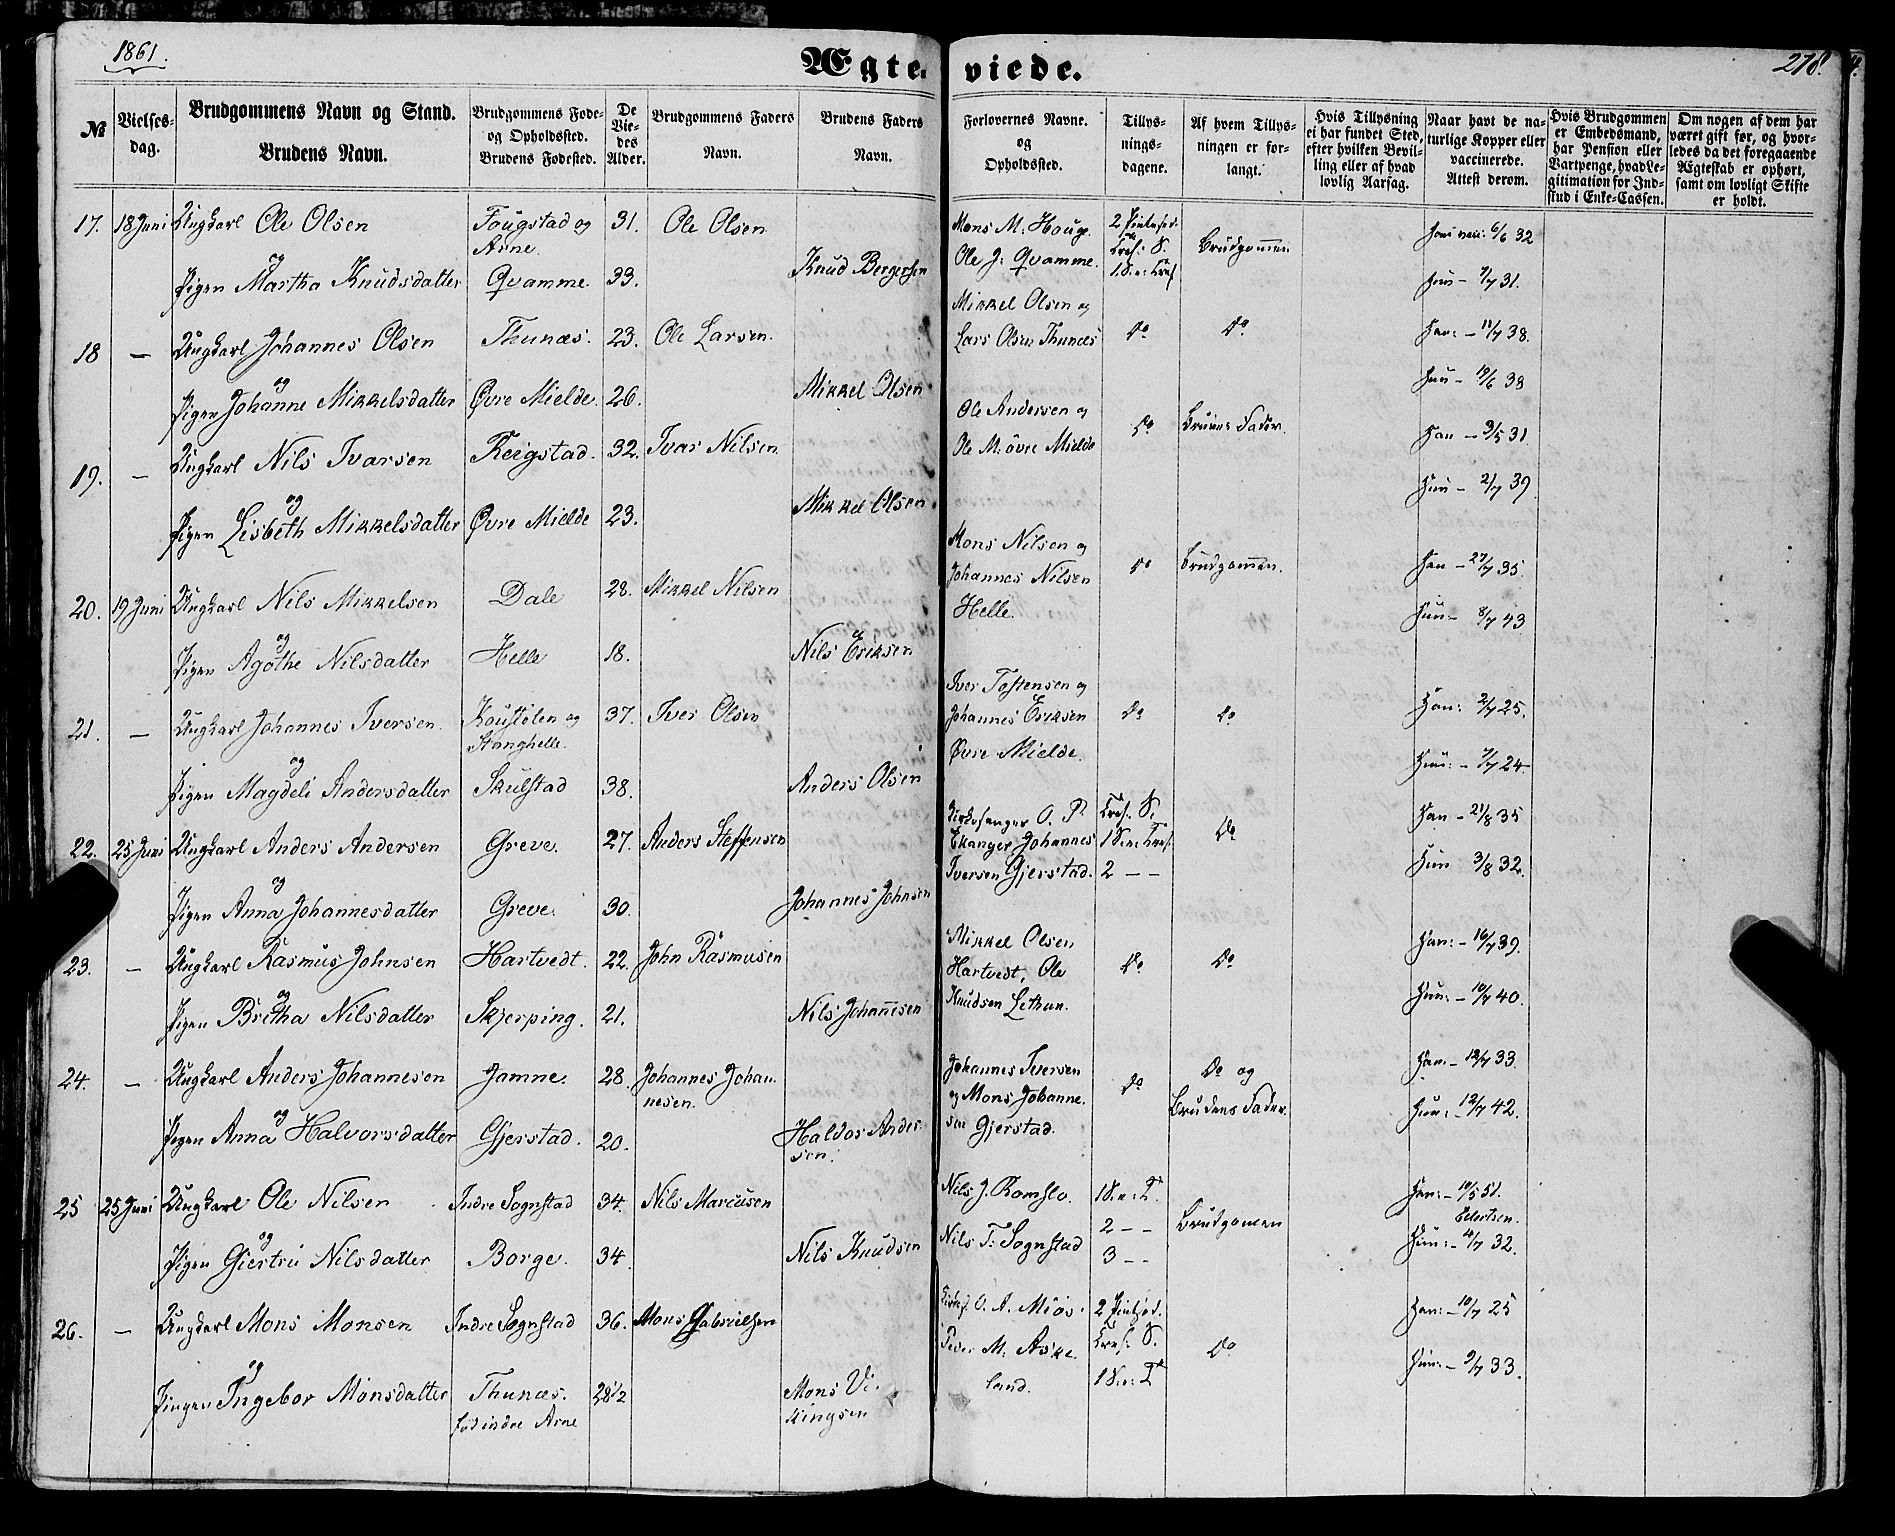 1861.
Ægte-viede.
278.
№
Vielses-dag.
Brudgommens Navn og Stand.
Brudens Navn.
Brudgommens Føde- og Opholdssted.
Brudens Fødested.
De Vie-des Alder.
Brudgommens Faders Navn.
Brudens Faders Navn.
Forlovernes Navne. og Opholdssted.
Tillys-nings-dagene.
Af hvem Tillys-ningen er for-langt.
Hvis Tillysning ei har fundet Sted, efter hvilken Bevil-ling eller af hvad lovlig Aarsag.
Naar havt de na-turlige Kopper eller vaccinerede. Attest derom.
Hvis Brudgommen er Embedsmand, har Pension eller Vartpenge, hvad Le-gitimation for Ind-skud i Enke-Cassen.
Om nogen af dem har været gift før, og hvor-ledes da det foregaaende Ægteskab er ophørt, samt om lovligt Skifte er holdt.
17. 18 Juni Ungkarl Ole Olsen Fougstad og Arne. 31. Ole Olsen Mons M. Houge. Brudgommen 6/6 32
og
Pigen Martha Knudsdatter Qvamme. 33. Knud Bergersen Ole J: Qvamme. Hun - 7/7 31.
18 — Ungkarl Johannes Olsen Thunæs. 23. Ole Larsen. Mikkel Olsen og Lars Olsen Thunæs Do Do Han: - 11/7 38.
og
Pigen Johanne Mikkelsdatter Øvre Mielde. 26. Mikkel Olsen Hun - 19/6 38
19. — Ungkarl Nils Ivarsen Reigstad. 32. Ivar Nilsen. Ole Andersen og Ole M: øvre Mielde Do Brudens Fader. Han - 9/5 31
og
Pigen Lisbeth Mikkelsdatter Øvre Mielde 23. Mikkel Olsen Hun - 2/7 39
20. 19 Juni Ungkarl Nils Mikkelsen Dale 28. Mikkel Nilsen Mons Nilsen og Johannes Nilsen Helle. Do Brudgommen. Han - 27/7 35.
og
Pigen Agothe Nilsdatter Helle 18. Nils Eriksen Hun - 8/7 43
21. — Ungkarl Johannes Iversen Koustølen og Stanghelle. 37. Iver Olsen Iver Tostensen og Johannes Eriksen Øvre Mielde. Do Do Han: 2/7 25.
og
Pigen Magdeli Andersdatter Skulstad 38. Anders Olsen Hun: - 7/7 24
22. 25 Juni Ungkarl Anders Andersen Greve. 27. Anders Steffensen Kirkesanger O. P. Ekanger Johannes Iversen Gjerstad. Do Han - 21/8 35
og
Pigen Anna Johannesdatter Greve. 30. Johannes Johnsen Hun 3/8 32.
23. — Ungkarl Rasmus Johnsen Hartvedt. 22. John Rasmusen Mikkel Olsen Hartvedt, Ole Knudsen Do Do Han: - 16/7 39.
og
Pigen Bretha Nilsdatter Skjerping. 21. Nils Johannesen Hun: - 10/7 40.
24. — Ungkarl Anders Johannesen Jamne. 28. Johannes Johannesen. Johannes Iversen og Mons Johannesen Gjerstad. Do Do og Brudens Fader. Han: - 12/7 33.
og
Pigen Anna Halvorsdatter Gjerstad. 20. Haldor Andersen. Hun: - 12/7 42.
25 25 Juni Ungkarl Ole Nilsen Indre Sognstad 34. Nils Marcusen Nils J. Romslo. Brudgommen Han: - 10/5 51.
og
Pigen Giertru Nilsdatter Borge. 34. Nils Knudsen Nils T: Sognstad Hun: - 4/7 32.
26. — Ungkarl Mons Monsen Indre Sognstad 36. Mons Gabrielsen O. A. Miøs. Do Han: - 10/7 25
og
Pigen Ingebor Monsdatter Thunæs. fød indre Arne 28 1/2 Mons Vikingsen Peder M: Askeland. Hun: - 9/7 33.